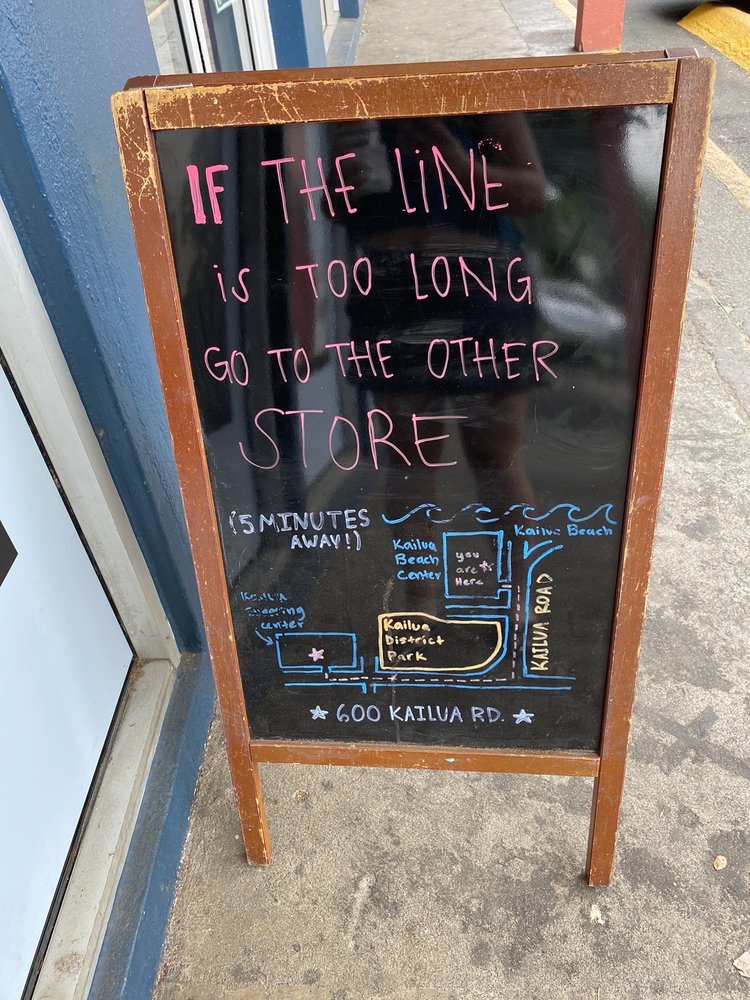 IF THE LiNE
is TOO LONG
GO TO THE OTHER
STORE
(5 MINUTES
AWAY!)
Kailua Beach
Kailua
Beach
Center
you
are
Here
KAILUA ROAD
Kailua
District
Park
center
600 KAILUA RD.